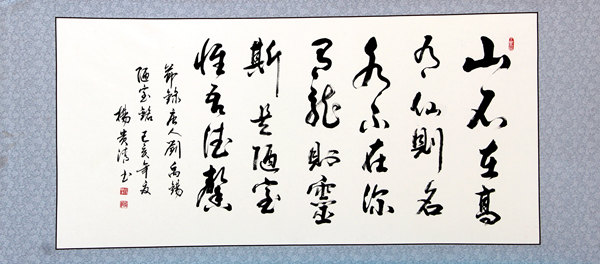 山不在高
有仙則名
水不在深
有龍則靈
斯是陋室
惟吾德馨
節錄唐人劉禹錫
陋室銘 己亥年夏
楊貴清书